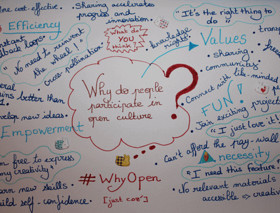 cost-effective.
• Sharing accelerates
progress and
innovation.
"It's the right thing to
do"
Efficiency
What do
YOU
think?
knowledge
rights
Values
• sharing
• community
no need to reinvent
the wheel!
cross pollination
Why do people
participate in
open culture
?
• Connect with like-minded
FUN!
Join exciting
"I just love it!
than 1
new ideas
Empowerment
Can't afford the pay-wall
necessity
free to express
creativity"
"I need this feature
No relevant materials
accessible
#WhyOpen
[just coz']
new skills
self-confidence